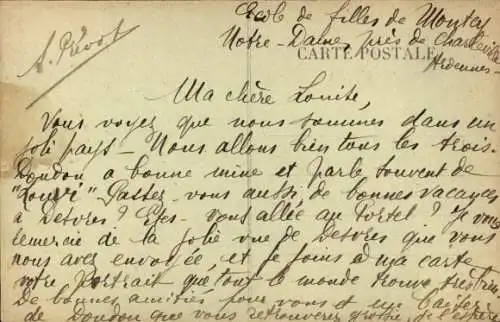 Ecole de filles de Montcy
Notre-Dame, près de Charleville
CARTE POSTALE
Ardennes -
A. Prévost
Ma chère Louise,
Vous voyez que nous sommes dans un
joli pays - Nous allons bien tous les trois.
Doudou a bonne mine et parle souvent de
"Louvi" - Passez-vous aussi de bonnes vacances
à Desvres ? Etes-vous allée au Portel ? Je vous
remercie de la jolie vue de Desvres que vous
nous avez envoyée, et je joins à ma carte
votre Portrait que tout le monde trouve très bien
de bonnes amitiés pour vous et un baiser
de Doudou que vous retrouverez grossie, je l'espère